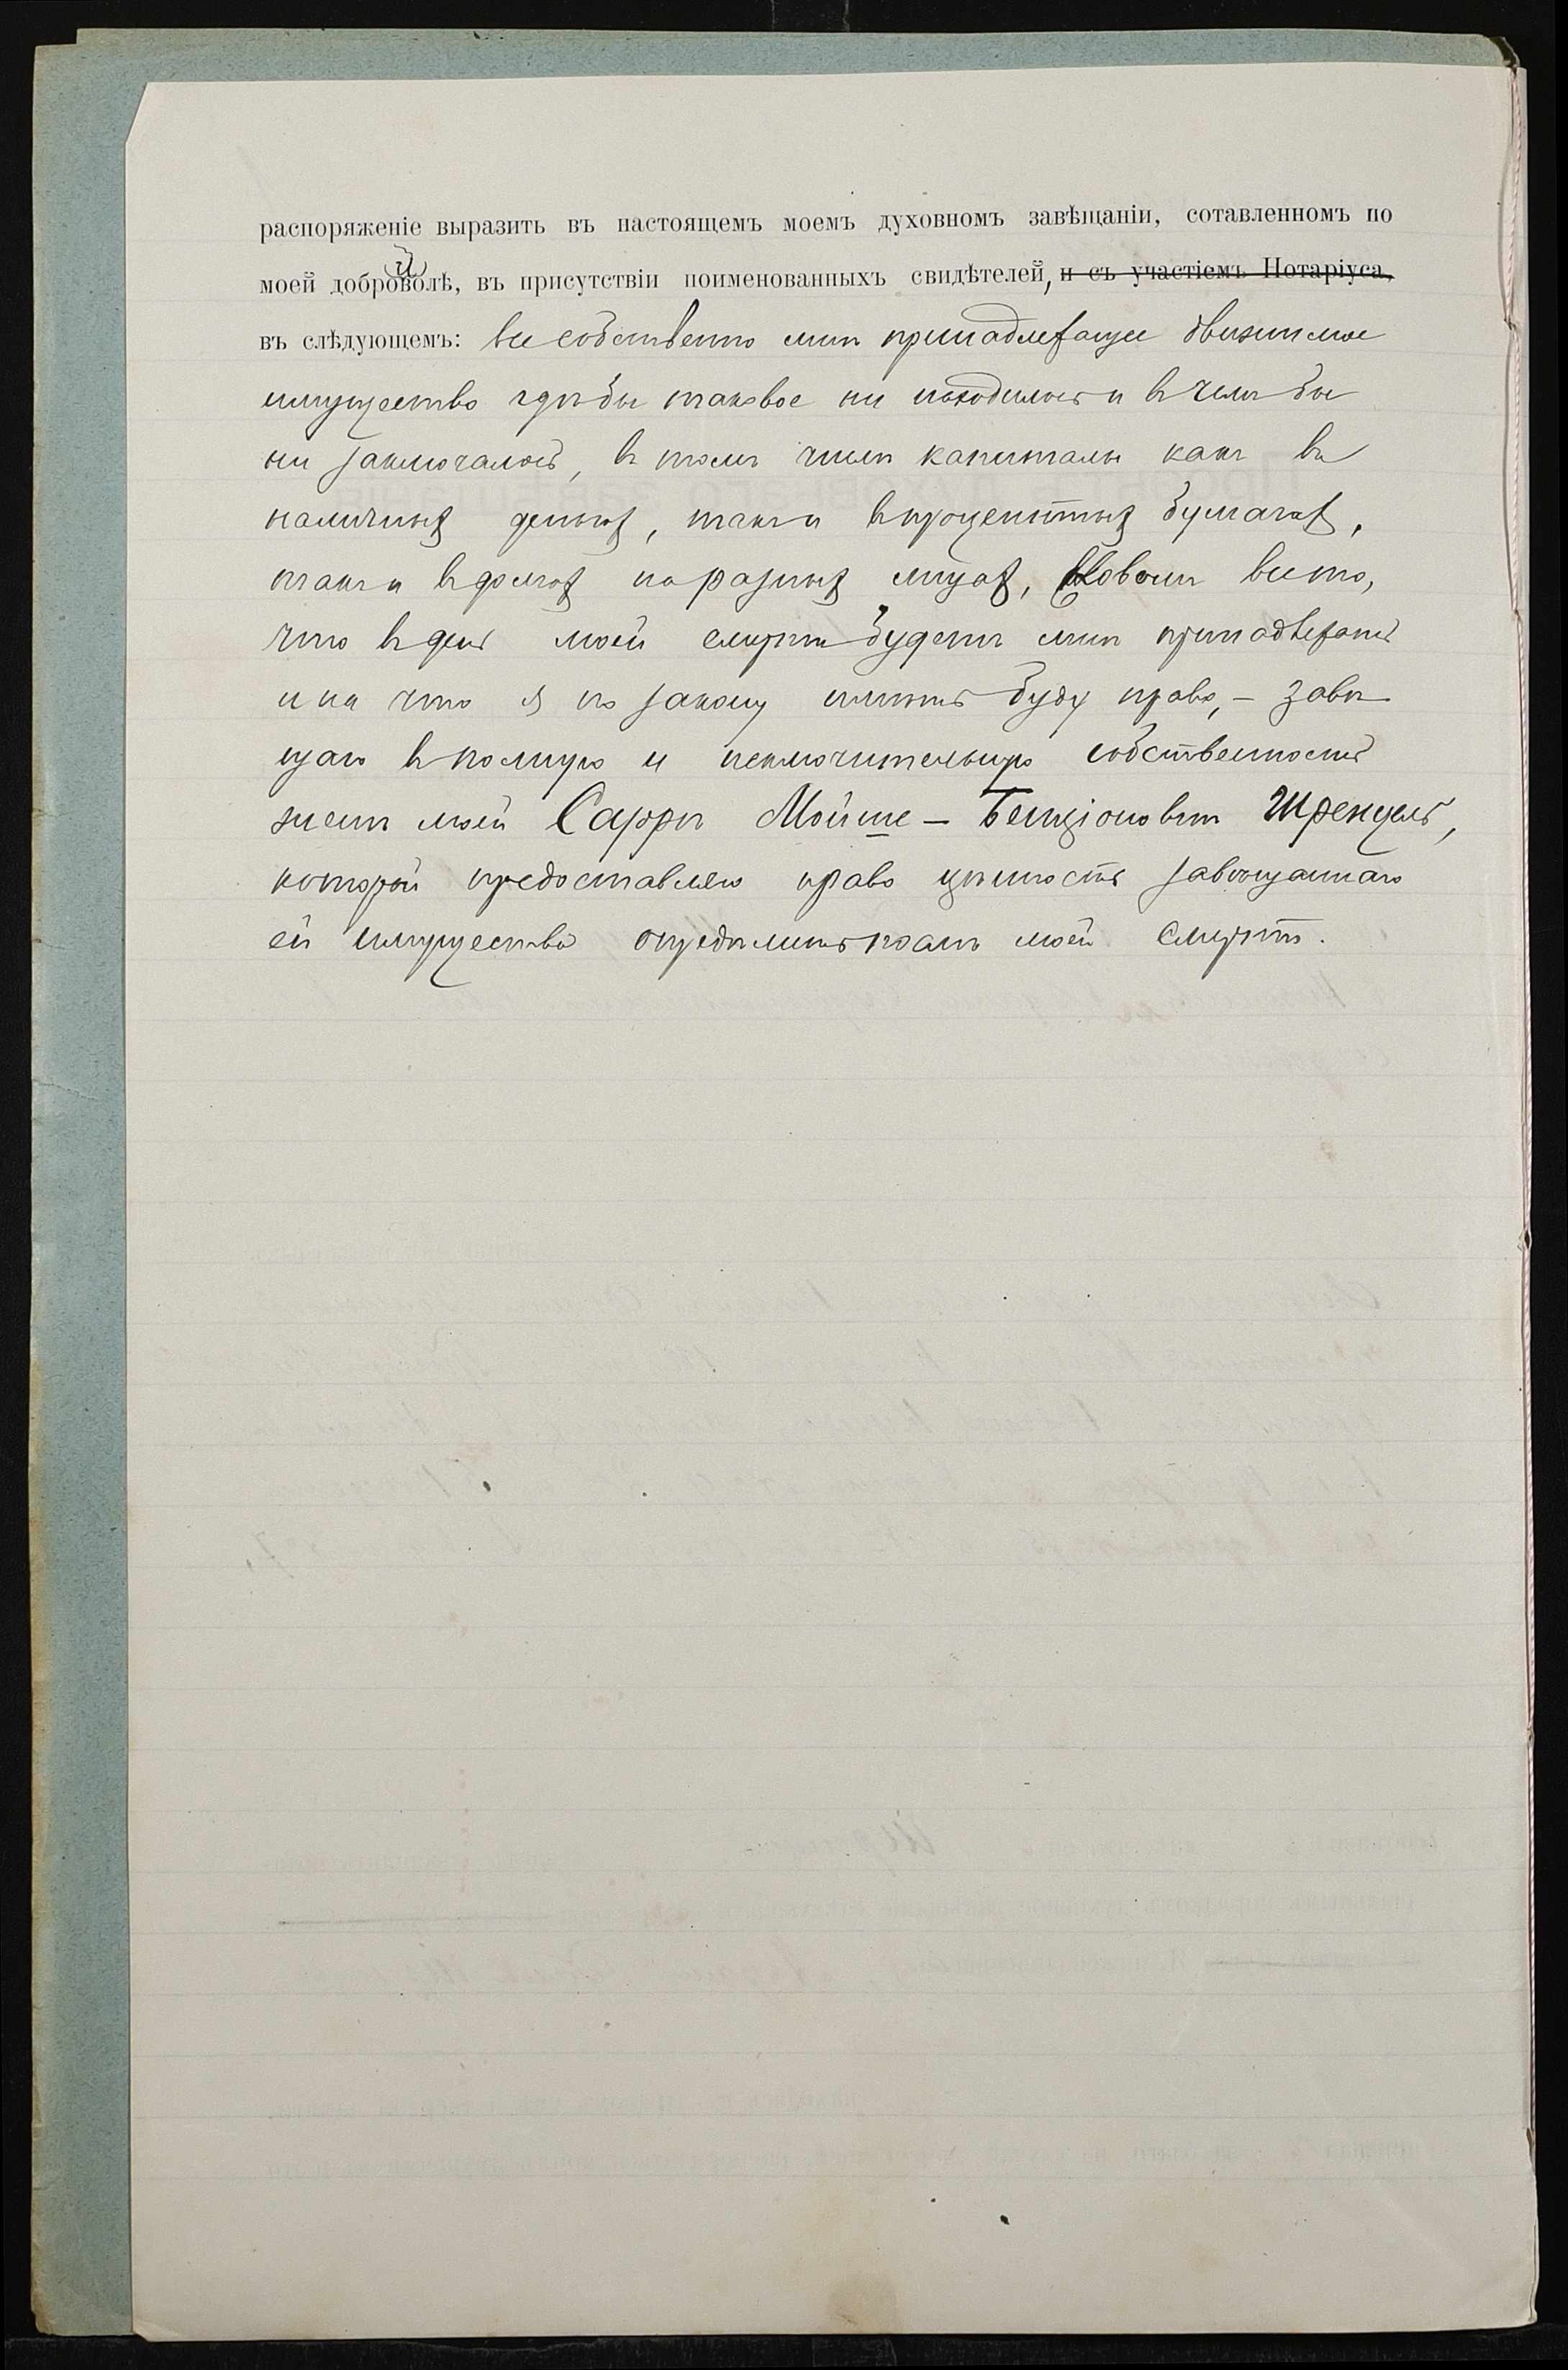 распоряженіе выразить въ настоящемъ моемъ духовномъ завѣщаніи, сотавленномъ по
моей доброй волѣ, въ присутствіи поименованныхъ свидѣтелей, и съ участіемъ Нотаріуса,
въ слѣдующемъ: все собственно мнѣ принадлежащее движимое
имущество гдѣ бы таковое ни находилось и въ чемъ бы
ни заключалось, въ томъ числѣ капиталы какъ въ
наличныхъ деньгахъ, такъ и въ процентныхъ бумагахъ,
такъ и въ долгахъ на разныхъ лицахъ, словомъ все то,
что въ день моей смерти будетъ мнѣ принадлежать
и на что я по закону имѣть буду право, – завѣ
щаю въ полную и исключительную собственность
женѣ моей Саррѣ Мойше – Бенціоновнѣ Шренцель,
которой предоставляю право цѣнность завѣщаннаго
ей имущества опредѣлить послѣ моей смерти.